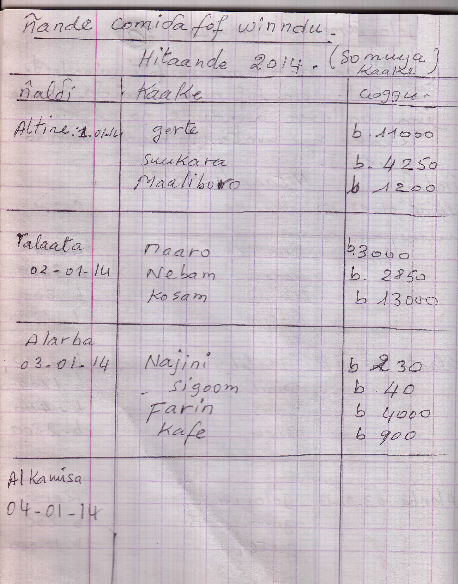 ñande comidafof winndu.
Hitaande 2014. (Somuya
Kaake)
ñaldi Kaake Coggu.
Altine: 1.01.14 gerte b 11000
Suukara b. 4250
Maaliburo b 1200
Talaata
02-01-14
maaro b.3000
Nebam b. 2850
Kosam b 13000
Alarba
03-01-14
Najini b 230
Sigoom b 40
Farin b 4000
Kafe b 900
Alkamisa
04-01-14